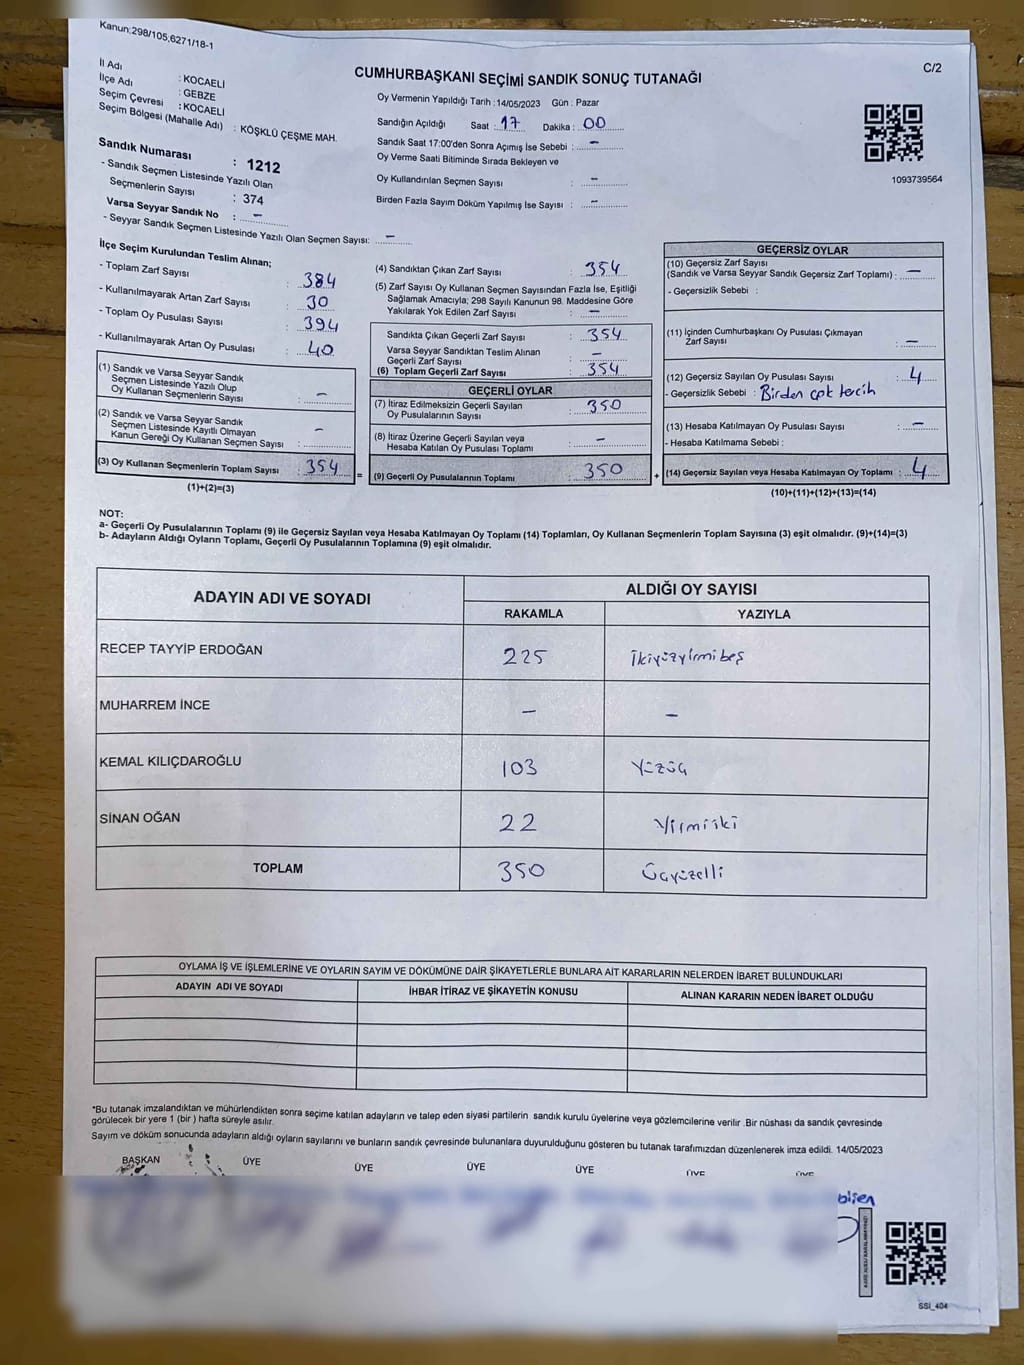 Kanun;298/105,6271/18-1
C/2
CUMHURBAŞKANI SEÇİMİ SANDIK SONUÇ TUTANAĞI
İl Adı : KOCAELİ
İlçe Adı : GEBZE
Seçim Çevresi : KOCAELİ
Seçim Bölgesi (Mahalle Adı) : KÖŞKLÜ ÇEŞME MAH.
Sandık Numarası : 1212
- Sandık Seçmen Listesinde Yazılı Olan
Seçmenlerin Sayısı : 374
Varsa Seyyar Sandık No : -
- Seyyar Sandık Seçmen Listesinde Yazılı Olan Seçmen Sayısı: -
Oy Vermenin Yapıldığı Tarih :14/05/2023 Gün : Pazar
Sandığın Açıldığı Saat : 17 Dakika : 00
Sandık Saat 17:00'den Sonra Açımış İse Sebebi : -
Oy Verme Saati Bitiminde Sırada Bekleyen ve
Oy Kullandırılan Seçmen Sayısı : -
Birden Fazla Sayım Döküm Yapılmış İse Sayısı : -
1093739564
İlçe Seçim Kurulundan Teslim Alınan;
- Toplam Zarf Sayısı : 384
- Kullanılmayarak Artan Zarf Sayısı : 30
- Toplam Oy Pusulası Sayısı : 394
- Kullanılmayarak Artan Oy Pusulası : 40
(1) Sandık ve Varsa Seyyar Sandık
Seçmen Listesinde Yazılı Olup
Oy Kullanan Seçmenlerin Sayısı : -
(2) Sandık ve Varsa Seyyar Sandık
Seçmen Listesinde Kayıtlı Olmayan
Kanun Gereği Oy Kullanan Seçmen Sayısı : -
(3) Oy Kullanan Seçmenlerin Toplam Sayısı : 354
(1)+(2)=(3)
(4) Sandıktan Çıkan Zarf Sayısı : 354
(5) Zarf Sayısı Oy Kullanan Seçmen Sayısından Fazla İse, Eşitliği
Sağlamak Amacıyla; 298 Sayılı Kanunun 98. Maddesine Göre
Yakılarak Yok Edilen Zarf Sayısı : -
Sandıkta Çıkan Geçerli Zarf Sayısı : 354
Varsa Seyyar Sandıktan Teslim Alınan
Geçerli Zarf Sayısı : -
(6) Toplam Geçerli Zarf Sayısı : 354
GEÇERLİ OYLAR
(7) İtiraz Edilmeksizin Geçerli Sayılan
Oy Pusulalarının Sayısı : 350
(8) İtiraz Üzerine Geçerli Sayılan veya
Hesaba Katılan Oy Pusulası Toplamı : -
= (9) Geçerli Oy Pusulalarının Toplamı : 350 +
GEÇERSİZ OYLAR
(10) Geçersiz Zarf Sayısı
(Sandık ve Varsa Seyyar Sandık Geçersiz Zarf Toplamı) : -
- Geçersizlik Sebebi :
(11) İçinden Cumhurbaşkanı Oy Pusulası Çıkmayan
Zarf Sayısı : -
(12) Geçersiz Sayılan Oy Pusulası Sayısı : 4
- Geçersizlik Sebebi : Birden çok tercih
(13) Hesaba Katılmayan Oy Pusulası Sayısı : -
- Hesaba Katılmama Sebebi :
(14) Geçersiz Sayılan veya Hesaba Katılmayan Oy Toplamı : 4
(10)+(11)+(12)+(13)=(14)
NOT:
a- Geçerli Oy Pusulalarının Toplamı (9) ile Geçersiz Sayılan veya Hesaba Katılmayan Oy Toplamı (14) Toplamları, Oy Kullanan Seçmenlerin Toplam Sayısına (3) eşit olmalıdır. (9)+(14)=(3)
b- Adayların Aldığı Oyların Toplamı, Geçerli Oy Pusulalarının Toplamına (9) eşit olmalıdır.
ADAYIN ADI VE SOYADI ALDIĞI OY SAYISI
RAKAMLA YAZIYLA
RECEP TAYYİP ERDOĞAN 225 İkiyüzyirmibeş
MUHARREM İNCE - -
KEMAL KILIÇDAROĞLU 103 Yüzüç
SİNAN OĞAN 22 Yirmiiki
TOPLAM 350 Üçyüzelli
OYLAMA İŞ VE İŞLEMLERİNE VE OYLARIN SAYIM VE DÖKÜMÜNE DAİR ŞİKAYETLERLE BUNLARA AİT KARARLARIN NELERDEN İBARET BULUNDUKLARI
ADAYIN ADI VE SOYADI İHBAR İTİRAZ VE ŞİKAYETİN KONUSU ALINAN KARARIN NEDEN İBARET OLDUĞU
*Bu tutanak imzalandıktan ve mühürlendikten sonra seçime katılan adayların ve talep eden siyasi partilerin sandık kurulu üyelerine veya gözlemcilerine verilir .Bir nüshası da sandık çevresinde
görülecek bir yere 1 (bir ) hafta süreyle asılır.
Sayım ve döküm sonucunda adayların aldığı oyların sayılarını ve bunların sandık çevresinde bulunanlara duyurulduğunu gösteren bu tutanak tarafımızdan düzenlenerek imza edildi. 14/05/2023
BAŞKAN ÜYE ÜYE ÜYE ÜYE ÜYE ÜYE
SSİ_404